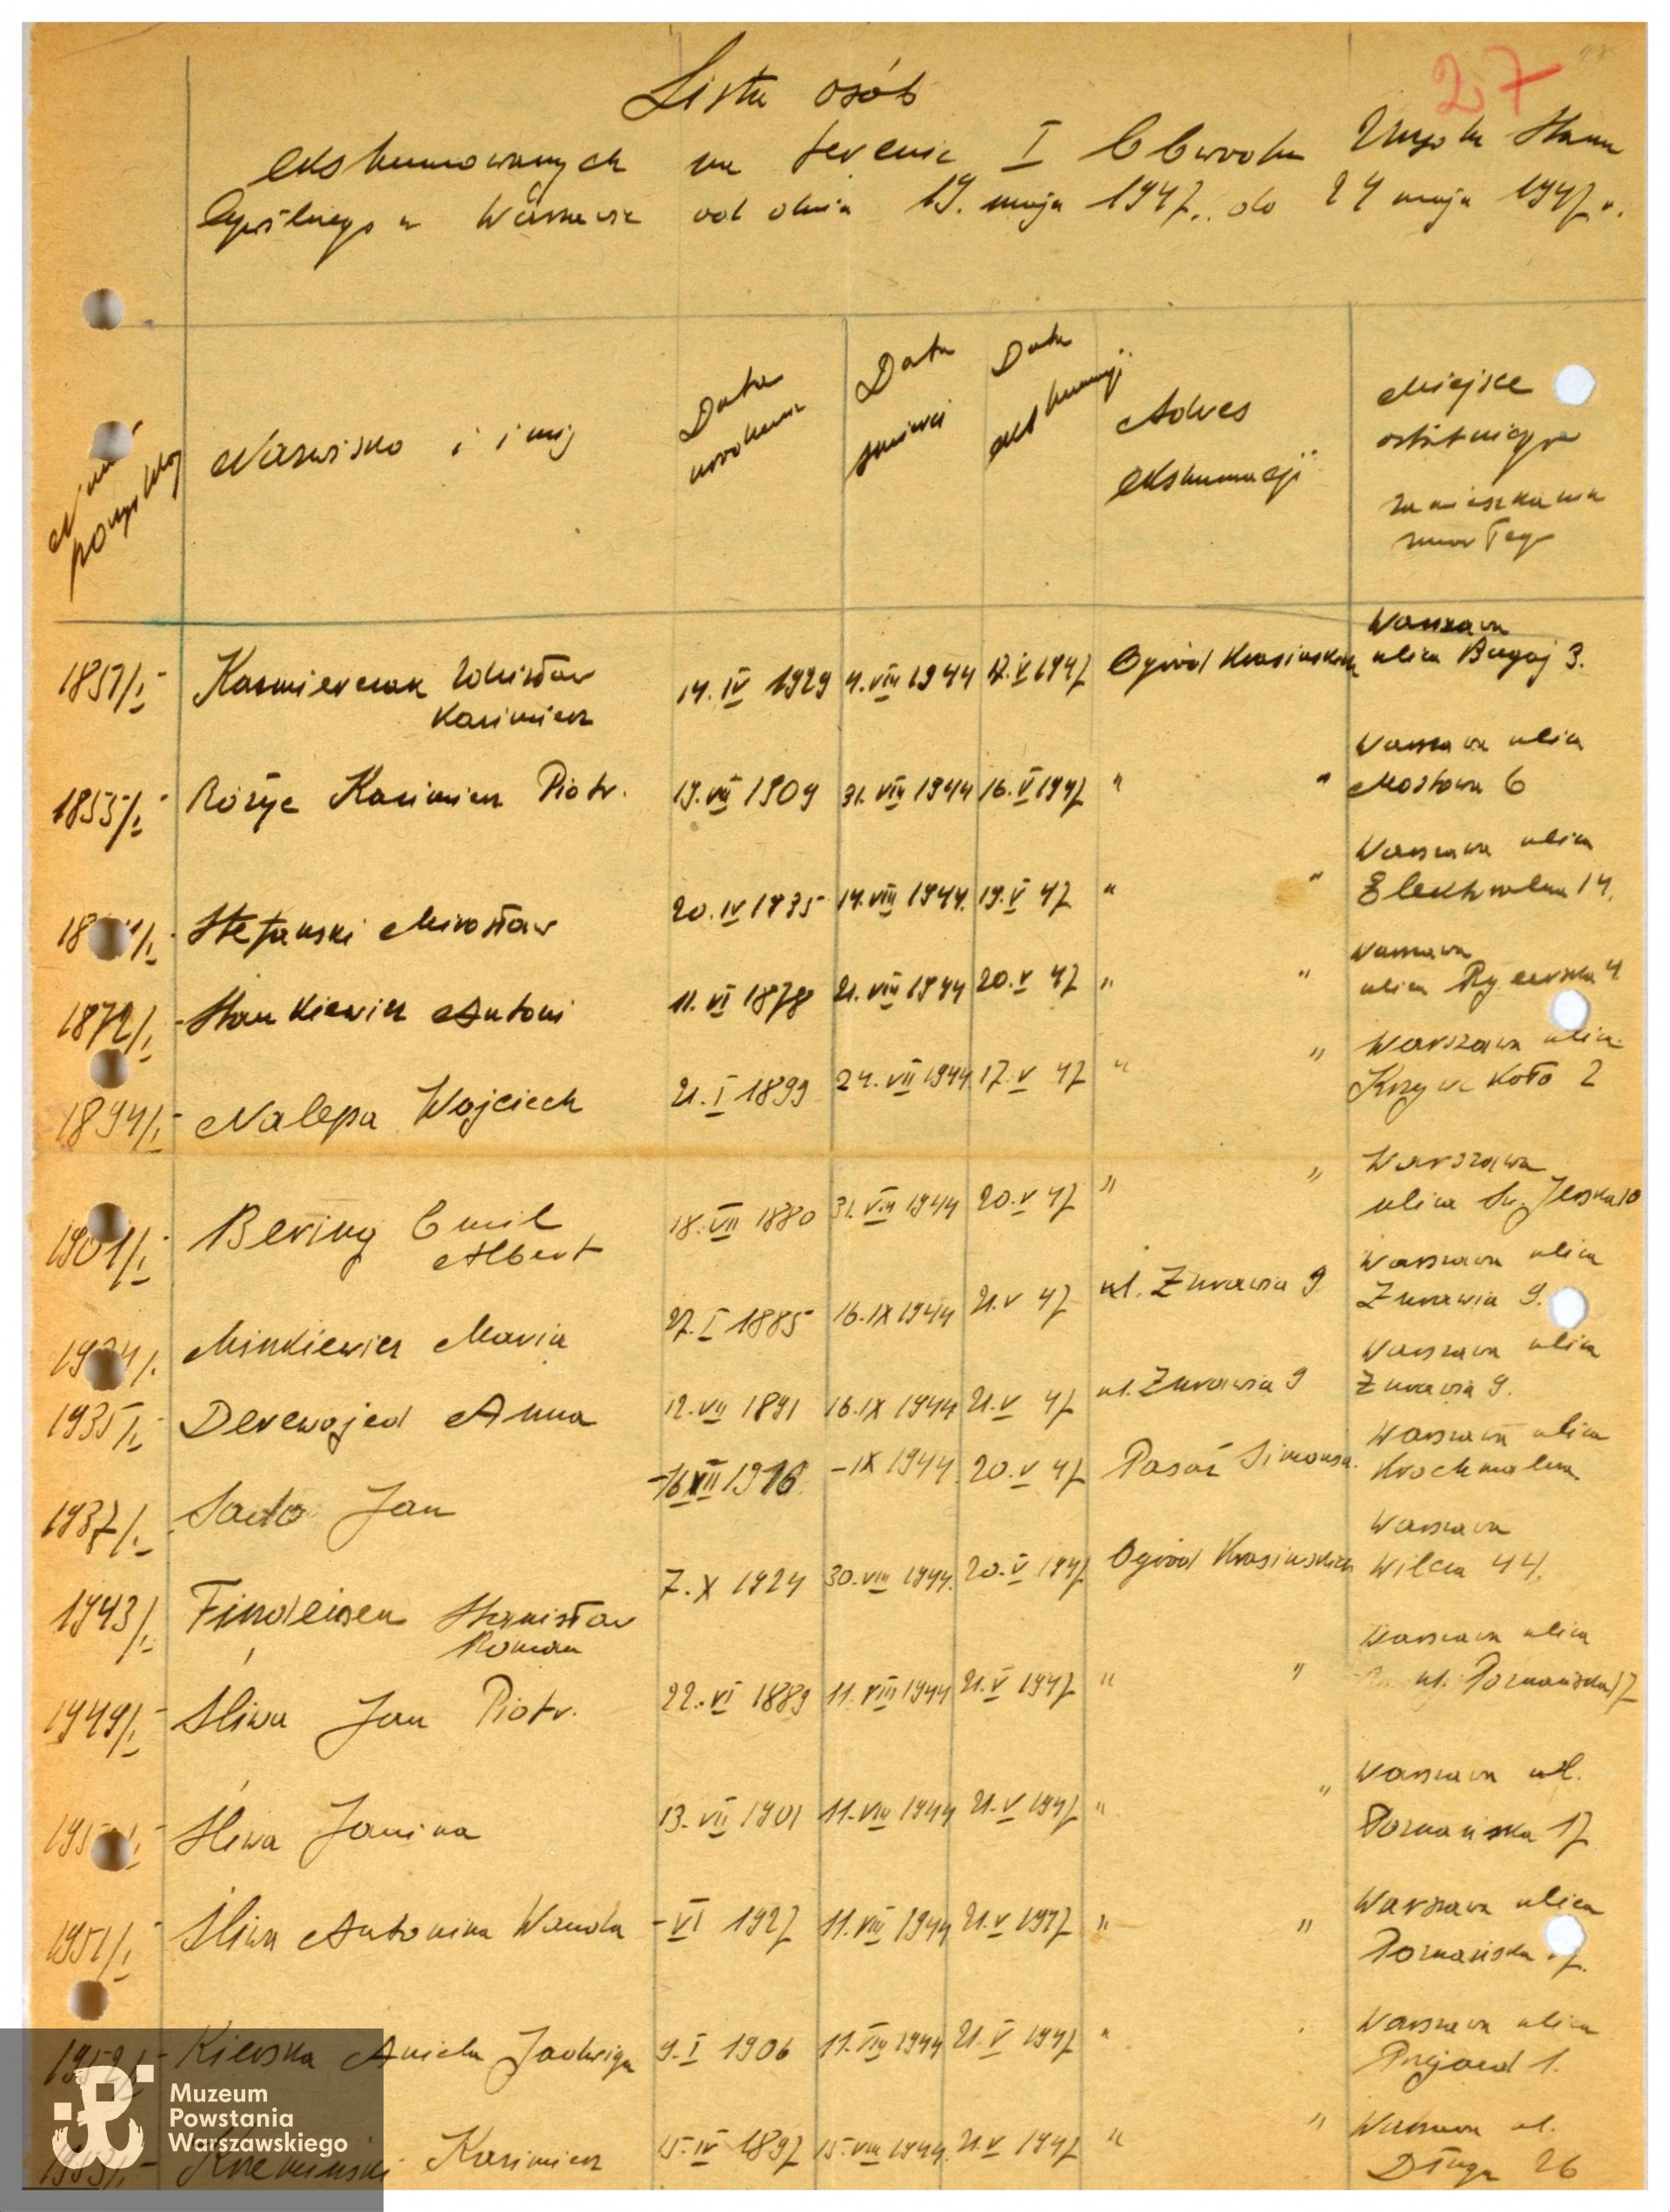 27
Lista osób
ekshumowanych na terenie I Obwodu Urzędu Stanu
Cywilnego w Warszawie od dnia 19. maja 1947. do 24 maja 1947 r.
Nazwisko i imię
Data urodzenia
Data śmierci
Data ekshumacji
Adres
ekshumacji
Miejsce
ostatniego
zamieszkania
zmarłego
1857/I - Kazmierczak Zdzisław Kazimierz 14. IV 1929 4. VIII 1944 17. V 1947 Ogród Krasińskich Warszawa ulica Bugaj 3.
1855/I - Różyc Kazimierz Piotr. 19. VII 1909 31. VIII 1944 16. V 1947 " " Warszawa ulica Mostowa 6
18 /I - Stefański Mirosław 20. IV 1935 14. VIII 1944. 19. V 47 " " Warszawa ulica 14.
1872/I - Stankiewicz Antoni 11. VI 1878 21. VIII 1944 20. V 47 " " Warszawa ulica Rycerska 4
1894/I - Nalepa Wojciech 21. I 1899 24. VII 1944 17. V 47 " " Warszawa ulica Krzywe Koło 2
1901/I - Bering Emil Albert 18. VII 1880 31. VIII 1944 20. V 47 " " Warszawa ulica Św. Jerska 10
Minkiewicz Maria 27. I 1885 16. IX 1944 21. V 47 ul. Żurawia 9 Warszawa ulica Żurawia 9.
1935/I - Derewojed Anna 12. VII 1891 16. IX 1944 21. V 47 ul. Żurawia 9 Warszawa ulica Żurawia 9.
1937/I - Sado Jan - 16 XII 1916 - IX 1944. 20. V 47 Pasaż Simonsa. Warszawa ulica Krochmalna
1943/I - Findeisen Stanisław Roman 7. X 1924 30. VIII 1944. 20. V 1947 Ogród Krasińskich Warszawa Wilcza 44.
1949/I - Śliwa Jan Piotr. 22. VI 1889 11. VIII 1944 21. V 1947 " " Warszawa ulica ul. Poznańska 17
Śliwa Janina 13. VII 1901 11. VIII 1944 21. V 1947 " " Warszawa ul. Poznańska 17
1951/I - Śliwa Antonina Wanda - VI 1927 11. VIII 1944 21. V 1947 " " Warszawa ulica Poznańska 7.
1952/I - Kierska Aniela Jadwiga 9. I 1906 11. VIII 1944 21. V 1947 " Warszawa ulica Przejazd 1.
Kazimierz 15. IV 1897 15. VIII 1944. 21. V 1947 " " Warszawa ul. Długa 26
Muzeum
Powstania
Warszawskiego